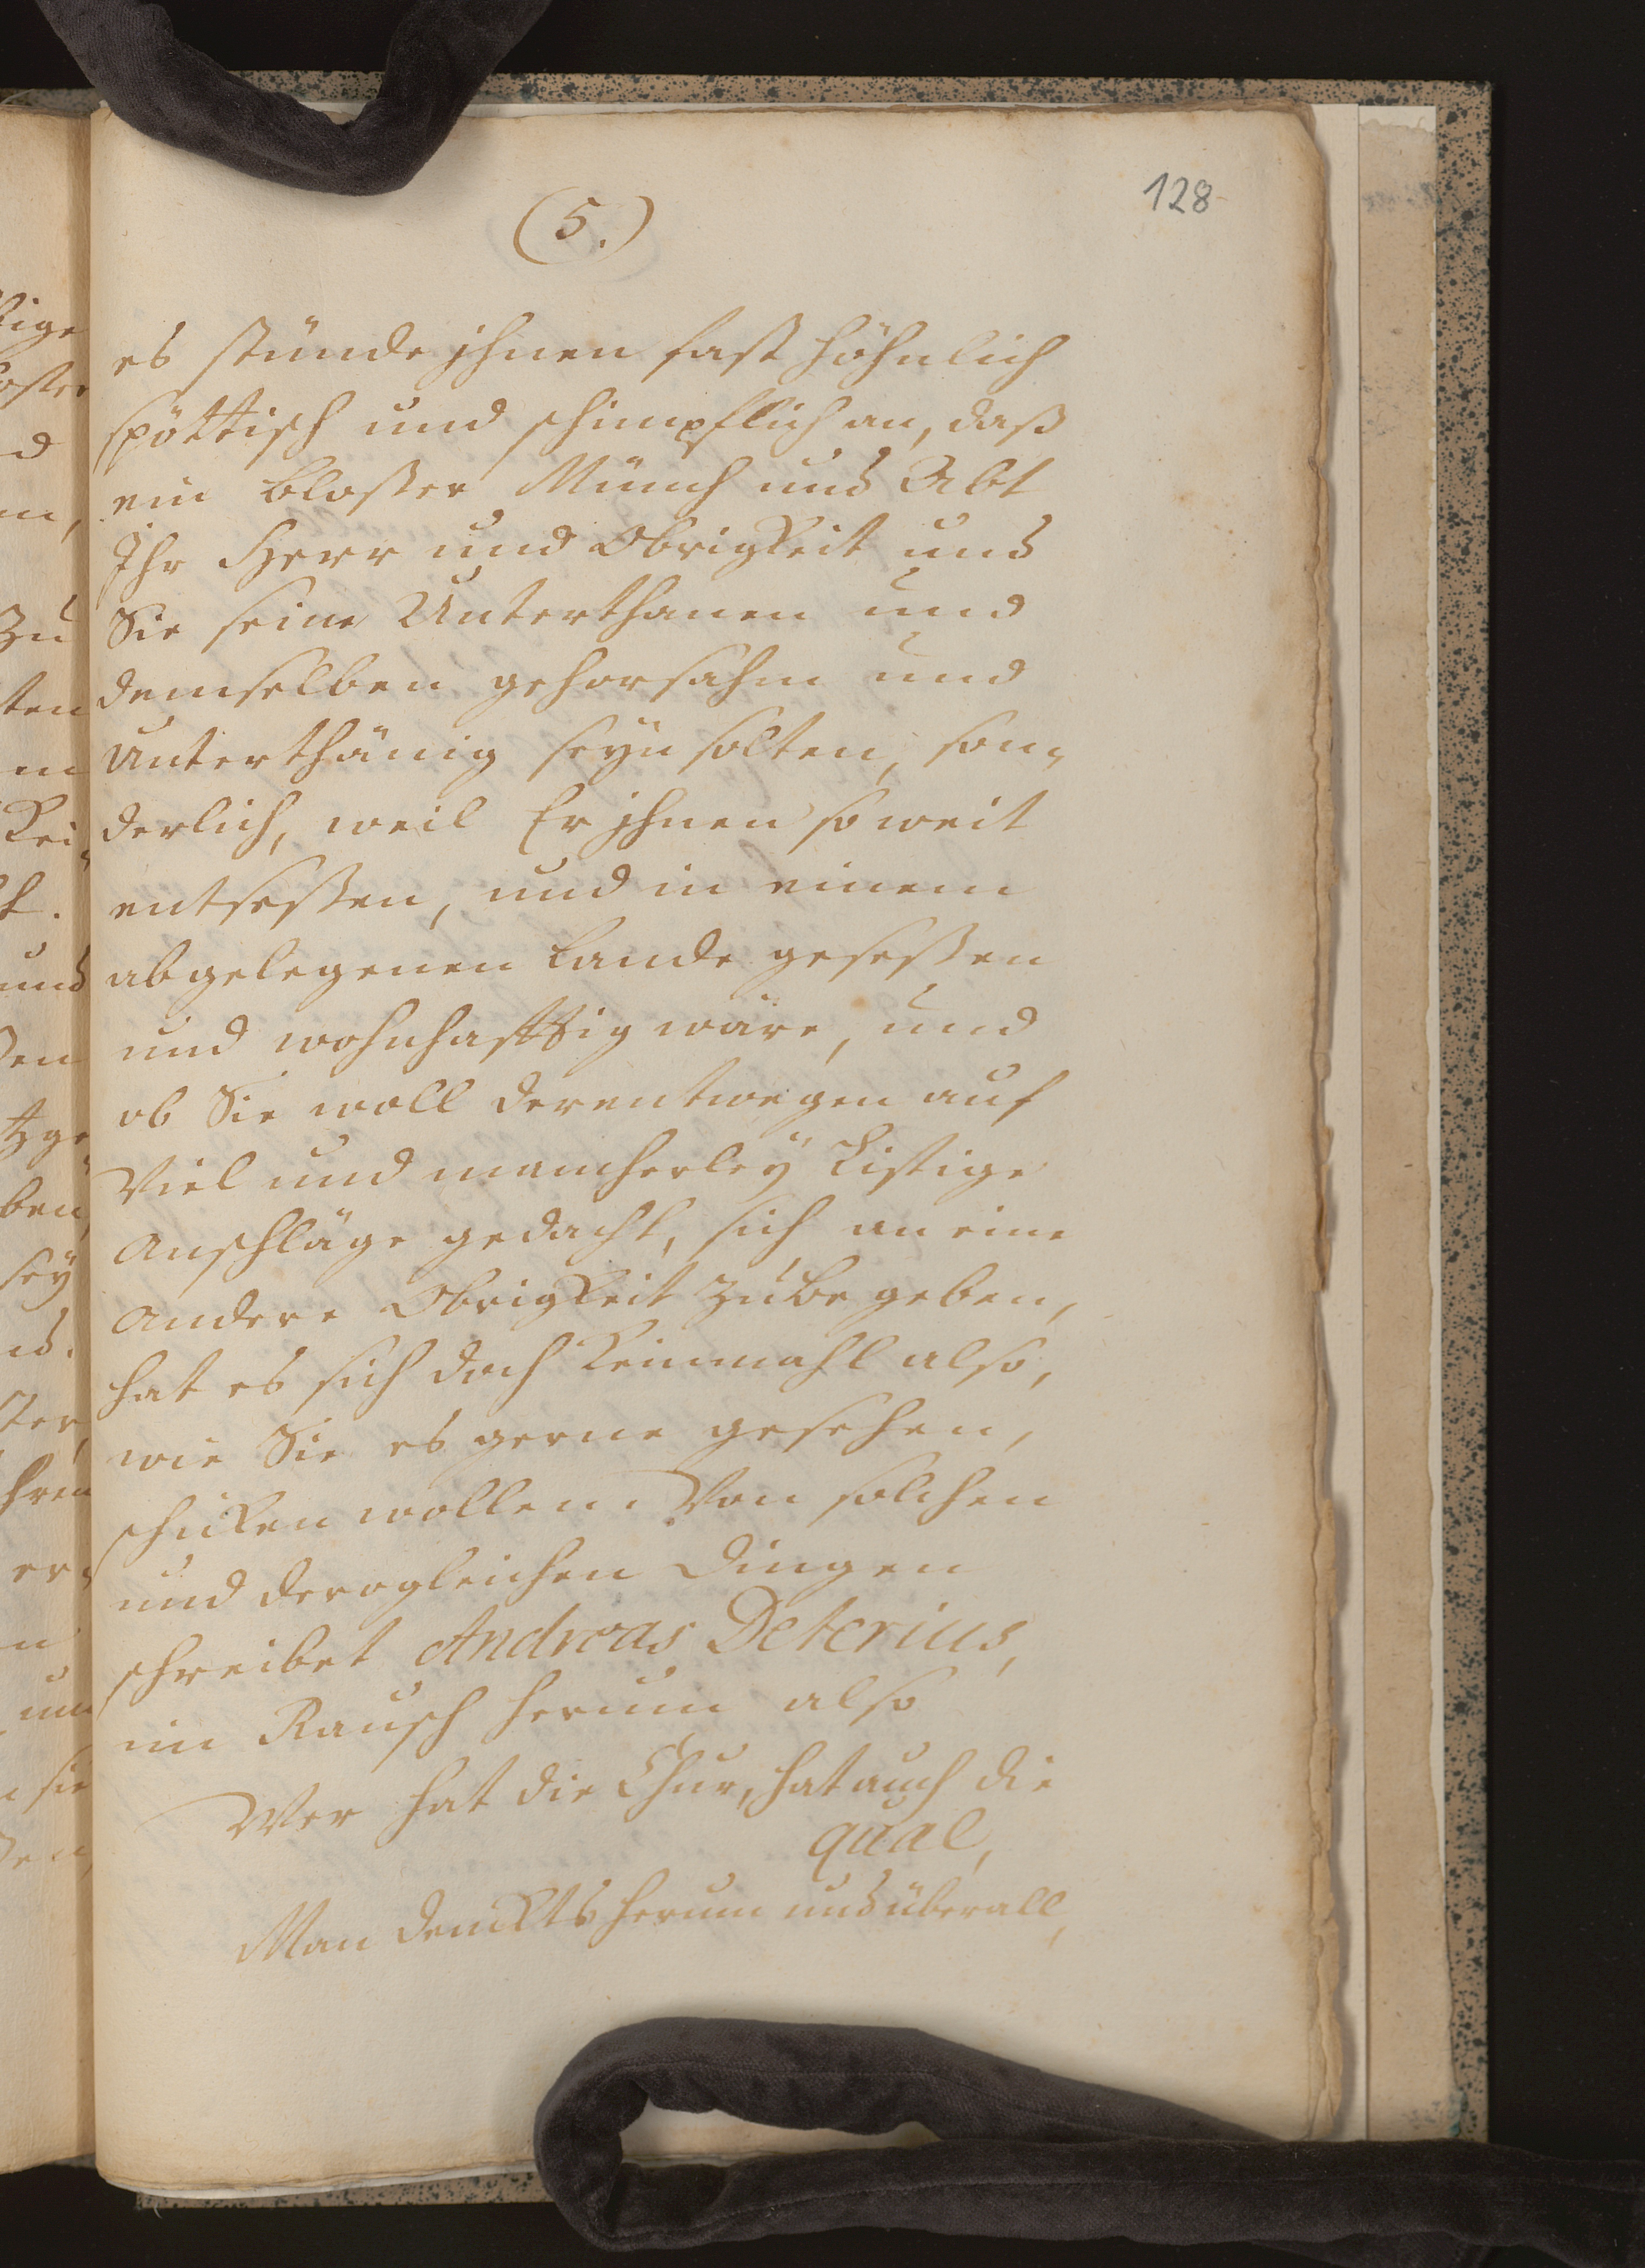 128
(5.)
es stünde jhnen fast höhnlich
spöttisch und schimpflich an, daß
ein bloßer Münch und Abt
Ihr Herr und Obrigkeit und
Sie seine Unterthanen und
demselben gehorsahm und
Unterthänig seyn solten, son„
derlich, weil Er jhnen so weit
entseßen, und in einem
abgelegenen Lande geseßen
und wohnhafftig wäre, und
ob Sie woll derentwegen auf
Viel und mancherleÿ Listige
Anschläge gedacht, sich an eine
Andere Obrigkeit zu begeben,
hat es sich doch Keinmahl also,
wie Sie es gerne gesehen,
schicken wollen. Von solchen
und derogleichen Dingen
schreibet Andreas Deterius,
im Rausch herum also
Wer hat die Chur, hat auch die
qual,
Man denckts herum und überall,